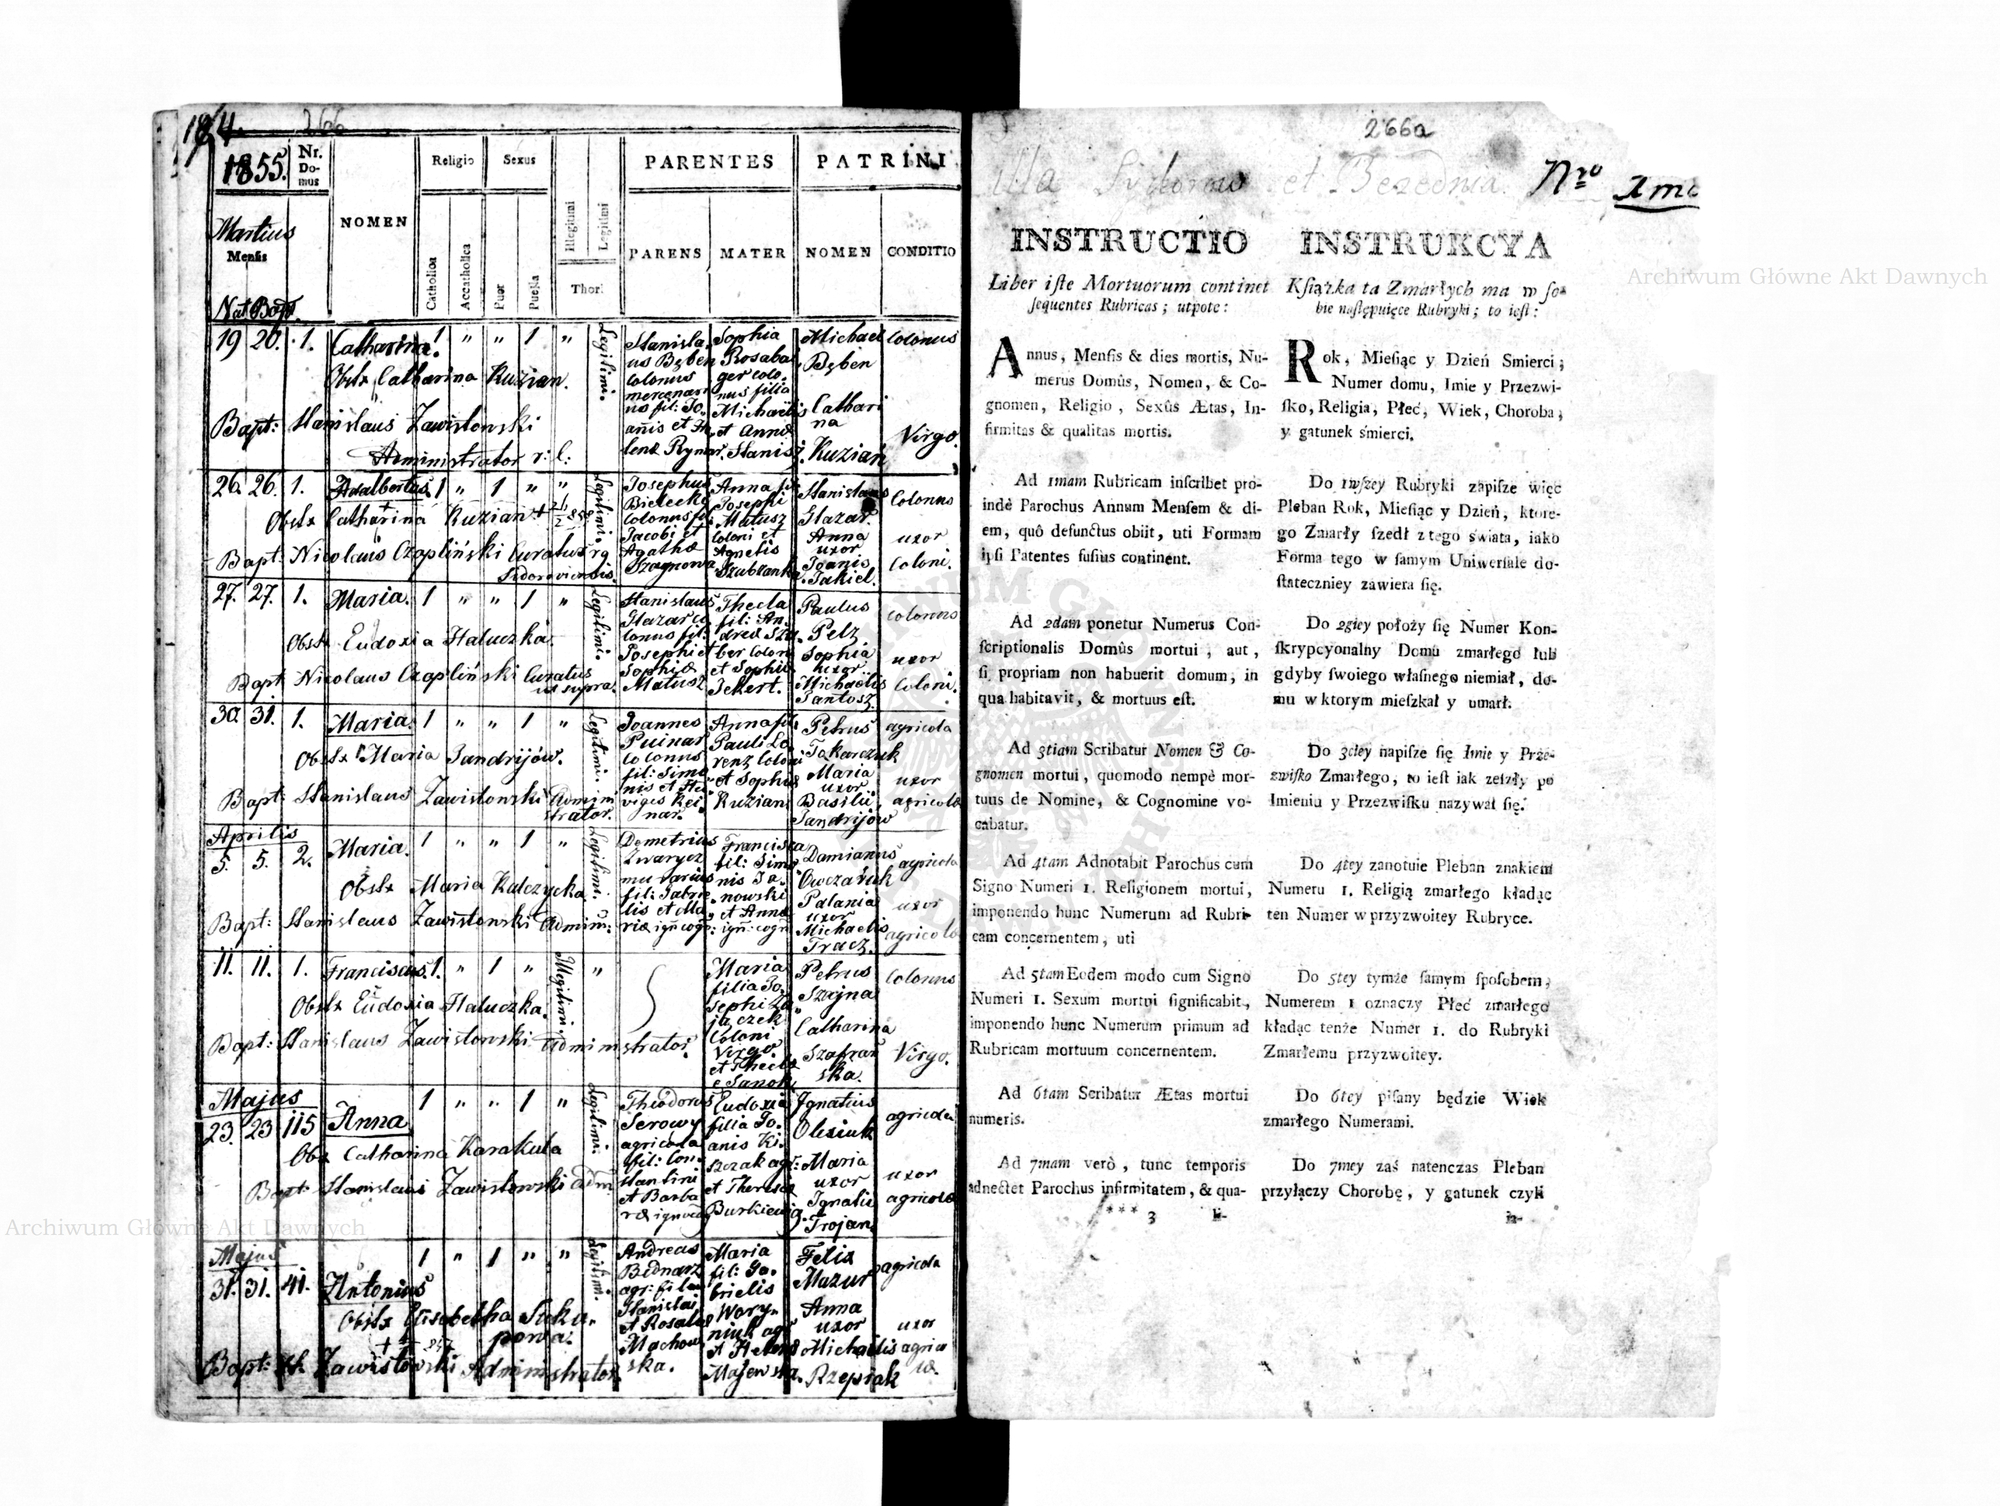 184.
266
1855.
Nr. Domus
NOMEN
Religio
Sexus
PARENTES
PATRINI
Martius
Mensis
Nat. Bapt.
Catholica
Accatholica
Puer
Puella
Illegitimi
Legitimi
Thori
PARENS
MATER
NOMEN
CONDITIO
19 20. 1. Catharina. 1 " " 1 " Legitimi.
Obstx Catharina Kuzian.
Bapt: Stanislaus Zawistowski
Administrator r: l:
Stanisla.
us Bęben
colonus
mercenari
us fil: Jo.
Sophia
Rosaba
ger colo.
nus filia
Michaelis
et Annæ
Michael
Bęben
Cathari
na
Kuzian
Colonus
Virgo.
26. 26. 1. Adalbertus. 1 " 1 " " Legitimi.
Obstx Catharina Kuzian
Bapt: Nicolaus Czapliński Curatus
Sidoroviensis.
Josephus
Bielecki
Colonus fil:
Jacobi et
Agathæ
Anna fil:
Josephi
Matusz
Coloni et
Agnetis
Stanislaus
Glazar.
Anna
uxor
Joanis
Jakiel.
Colonus
uxor
Coloni.
27. 27. 1. Maria. 1 " " 1 " Legitimi.
Obstx Eudoxia Haluczka.
Bapt Nicolaus Czapliński Curatus
ut supra.
Stanislaus
Glazar co
lonus fil:
Josephi et
Sophiæ
Matusz
Thecla
fil: An.
dreæ Szu
ber Coloni
et Sophiæ
Jekert.
Paulus
Pelz
Sophia
uxor
Michaëlis
Jantosz
colonus
uxor
Coloni.
30. 31. 1. Maria. 1 " " 1 " Legitimi.
Obstx Maria Jandrijów.
Bapt: Stanislaus Zawistowski Admini
strator.
Joannes
Puinar
Colonus
fil: Simo
nis et He
viges Kei
nar.
Anna fil:
Pauli Lo
renz Coloni
et Sophiæ
Kuzian
Petrus
Tokarczuk
Maria
uxor
Basilii
Jandrijów
agricola
uxor
agricolæ
Aprilis
5. 5. 2. Maria. 1 " " 1 " Legitimi.
Obstx Maria Kalczycka.
Bapt: Stanislaus Zawistowski Admin:
Demetrius
Zwarycz
murarius
fil: Gabrie
lis et Ma
riæ ign: cogn:
Francisca
fil: Simo
nis Ja.
nowski
et Annæ
ign: cogn
Damianus
Owczaruk
Palania
uxor
Michaelis
Tracz.
agricola
uxor
agricolæ
11. 11. 1. Franciscus. 1. " 1 " Illegitimi. "
Obstx Eudoxia Haluczka.
Bapt: Stanislaus Zawistowski Administrator.
Maria
filia Jo.
sephi Za
jaczek
Coloni
Virgo.
et Theclæ
e Sanok.
Petrus
Szajna
Catharina
Szafrań
ska.
Colonus
Virgo.
Majus
23. 23 115 Anna 1 " " 1 " Legitimi.
Obs. Catharina Karakula
Bapt Stanislaus Zawistowski adm
Theodorus
Serowy
agricola
fil: Con.
stantini
et Barba
ræ ignoti
Eudoxia
filia Jo.
anis Ki.
szczak agr:
et Theresæ
Burkiewicz.
Ignatius
Olesiuk
Maria
uxor
Ignatii
Trojan.
agricola
uxor
agricolæ
Majus
31. 31. 41. Antonius 1 " 1 " " Legitimi.
Obstx Elisabetha Soku.
powa.
Bapt: St. Zawistowski Administrator.
Andreas
Bednarz
agr: filius
Stanislai
et Rosaliæ
Machow
ska.
Maria
fil: Ga.
brielis
Wory.
niuk agr
et Helenæ
Majewska.
Felix
Mazur
Anna
uxor
Michaelis
Rzepiak
agricola
uxor
agrico
læ.
266a
Sydorow et Bezednia. Nro 2mi
INSTRUCTIO
Liber iſte Mortuorum continet
ſequentes Rubricas; utpote:
Annus, Menſis & dies mortis, Nu-
merus Domûs, Nomen, & Co-
gnomen, Religio, Sexûs Ætas, In-
firmitas & qualitas mortis.
Ad 1mam Rubricam inſcribet pro-
indè Parochus Annum Menſem & di-
em, quô defunctus obiit, uti Formam
ipſi Patentes fuſius continent.
Ad 2dam ponetur Numerus Con-
ſcriptionalis Domûs mortui, aut,
ſi propriam non habuerit domum, in
qua habitavit, & mortuus eſt.
Ad 3tiam Scribatur Nomen & Co-
gnomen mortui, quomodo nempè mor-
tuus de Nomine, & Cognomine vo-
cabatur.
Ad 4tam Adnotabit Parochus cum
Signo Numeri 1. Religionem mortui,
imponendo hunc Numerum ad Rubri-
cam concernentem, uti
Ad 5tam Eodem modo cum Signo
Numeri 1. Sexum mortui ſignificabit,
imponendo hunc Numerum primum ad
Rubricam mortuum concernentem.
Ad 6tam Scribatur Ætas mortui
numeris.
Ad 7mam verò, tunc temporis
adnectet Parochus infirmitatem, & qua-
*** 3 li-
INSTRUKCYA
Kſiążka ta Zmarłych ma w ſo-
bie naſtępuięce Rubryki; to ieſt:
Rok, Mieſiąc y Dzień Smierci;
Numer domu, Imie y Przezwi-
ſko, Religia, Płeć, Wiek, Choroba,
y gatunek śmierci.
Do 1wſzey Rubryki zapiſze więc
Pleban Rok, Mieſiąc y Dzień, ktore-
go Zmarły ſzedł z tego świata, iako
Forma tego w ſamym Uniwerſale do-
ſtateczniey zawiera ſię.
Do 2giey położy ſię Numer Kon-
ſkrypcyonalny Domu zmarłego lub
gdyby ſwoiego właſnego niemiał, do-
mu w ktorym mieſzkał y umarł.
Do 3ciey napiſze ſię Imie y Prze-
zwiſko Zmarłego, to ieſt iak zeſzły po
Imieniu y Przezwiſku nazywał ſię.
Do 4tey zanotuie Pleban znakiem
Numeru 1. Religią zmarłego kładąc
ten Numer w przyzwoitey Rubryce.
Do 5tey tymże ſamym ſpoſobem,
Numerem 1 oznaczy Płeć zmarłego
kładąc tenże Numer 1. do Rubryki
Zmarłemu przyzwoitey.
Do 6tey piſany będzie Wiek
zmarłego Numerami.
Do 7mey zaś natenczas Pleban
przyłączy Chorobę, y gatunek czyli
Archiwum Główne Akt Dawnych
Archiwum Główne Akt Dawnych